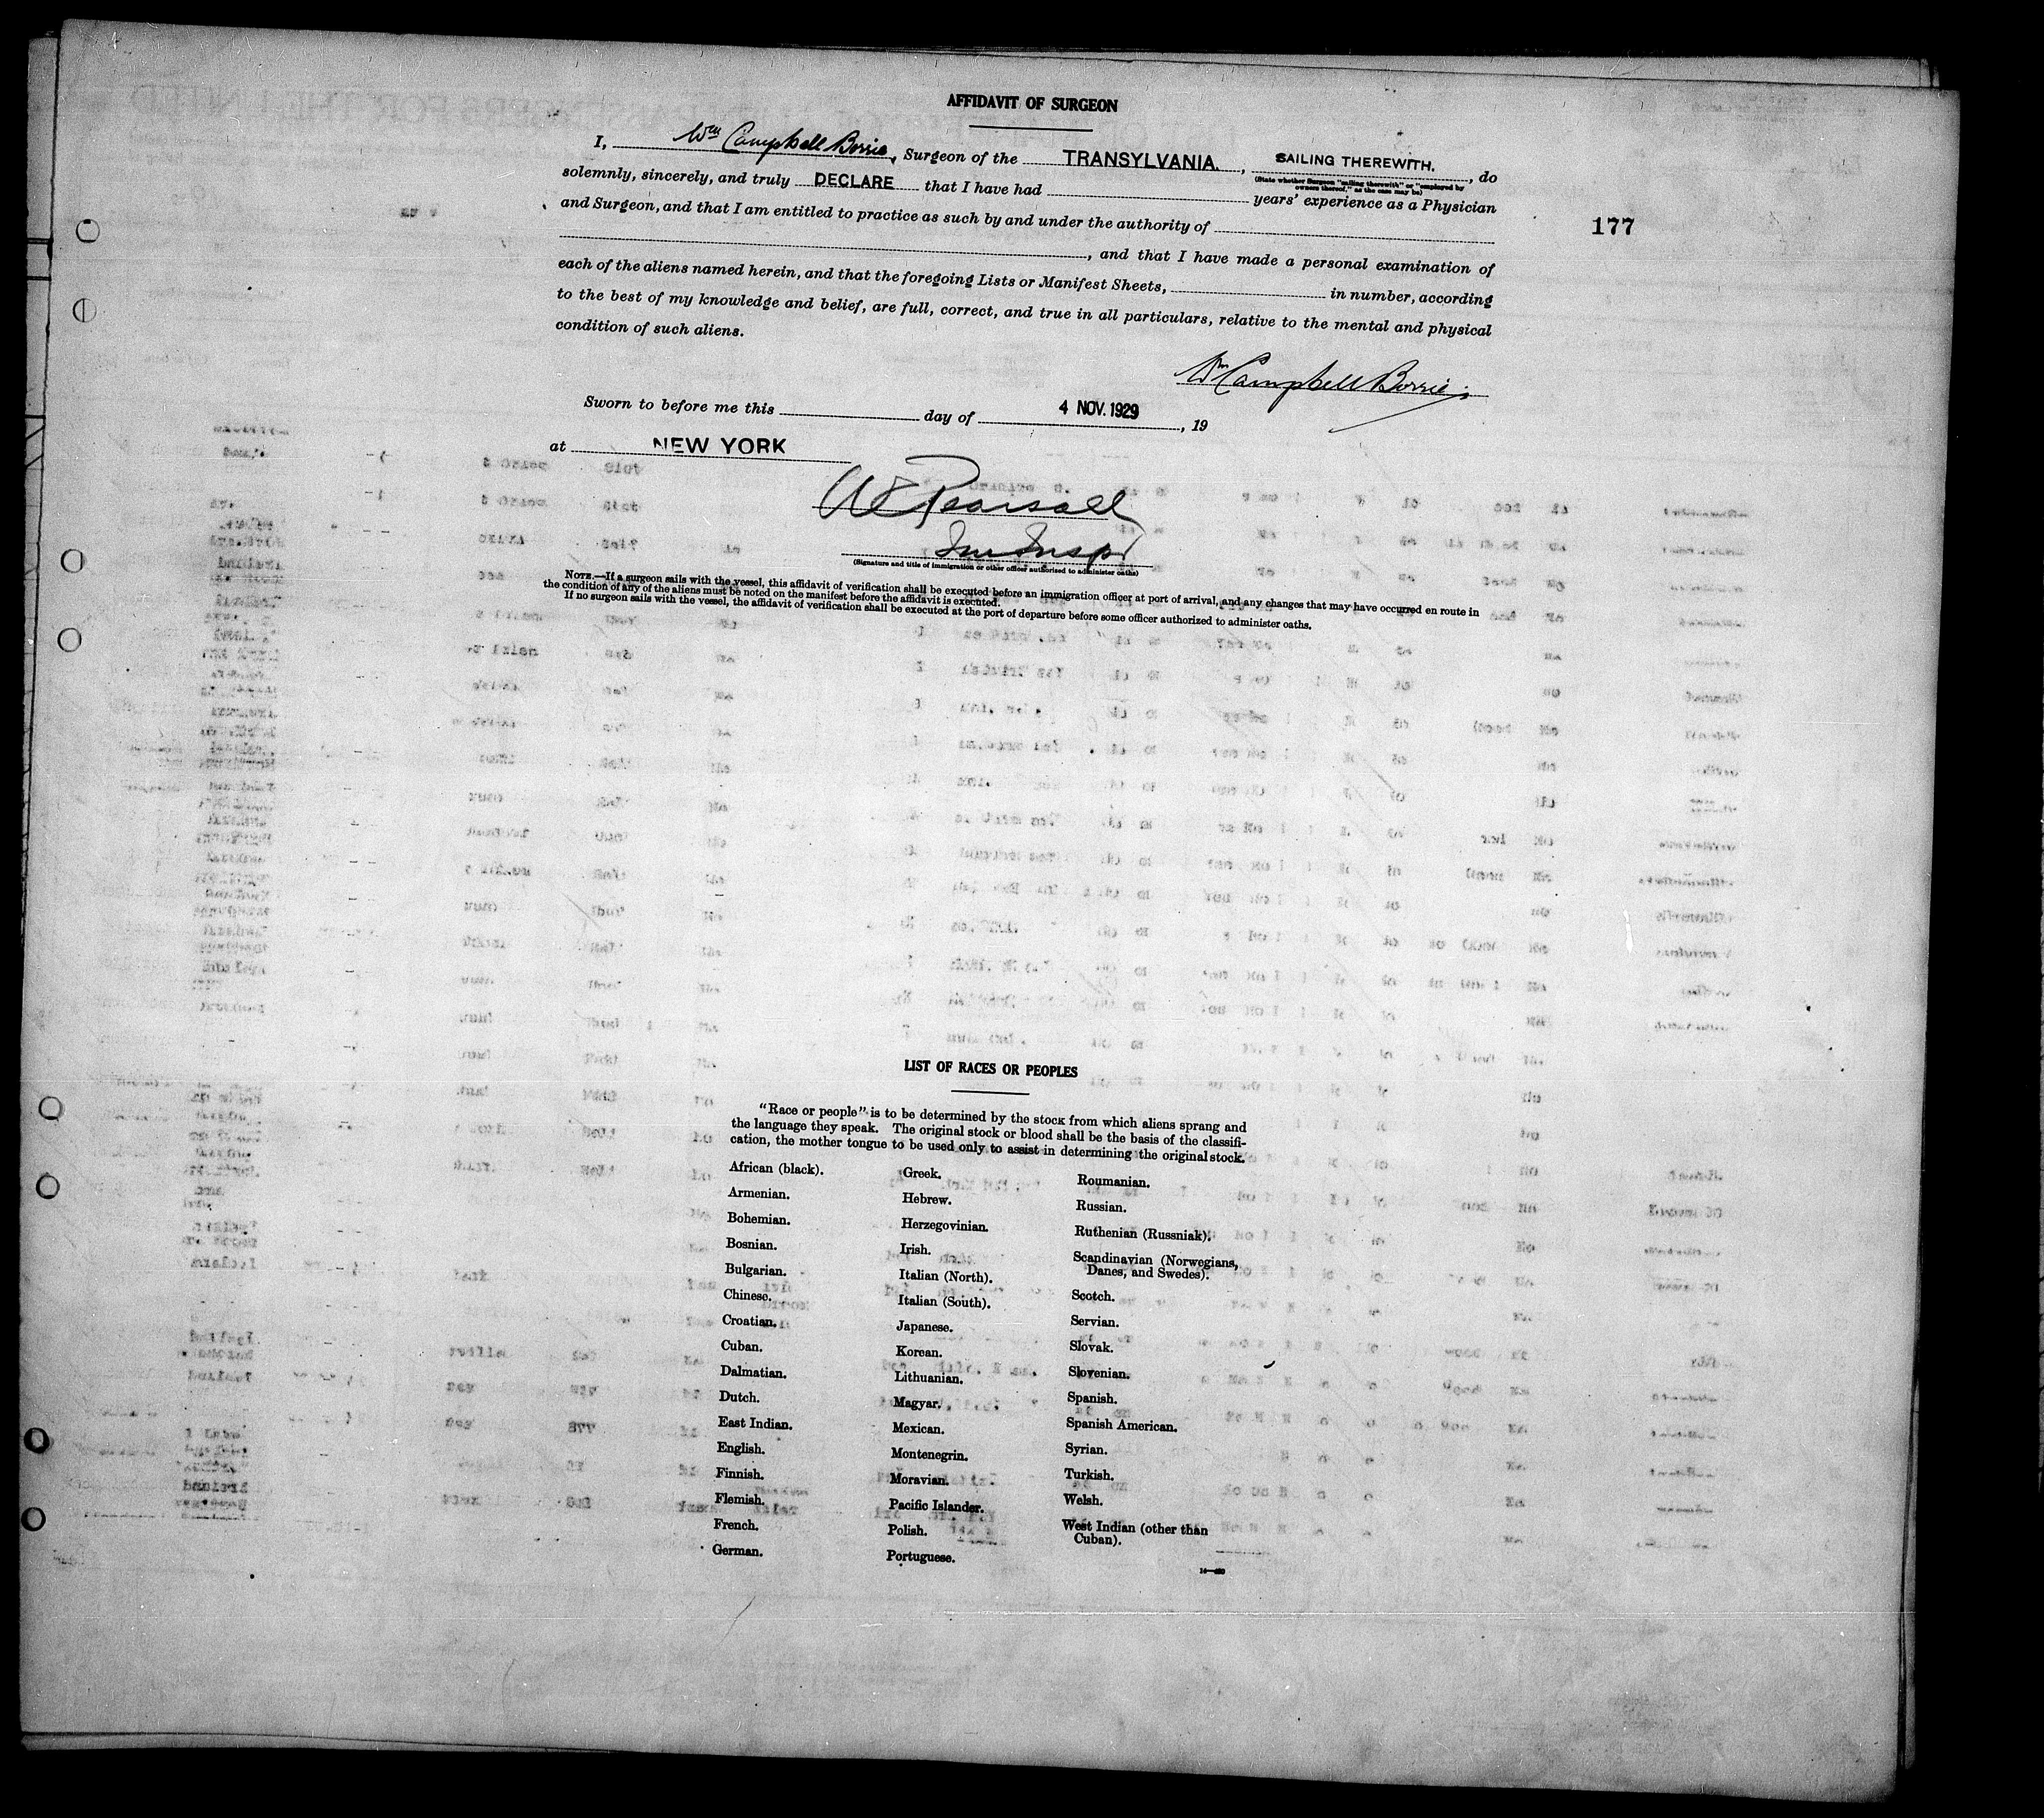 AFFIDAVIT OF SURGEON
I, Wm Campbell Borrie, Surgeon of the TRANSYLVANIA., SAILING THEREWITH., do
(State whether Surgeon "sailing therewith" or "employed by
owners thereof," as the case may be)
solemnly, sincerely, and truly DECLARE that I have had years' experience as a Physician
and Surgeon, and that I am entitled to practice as such by and under the authority of
177
, and that I have made a personal examination of
each of the aliens named herein, and that the foregoing Lists or Manifest Sheets, in number, according
to the best of my knowledge and belief, are full, correct, and true in all particulars, relative to the mental and physical
condition of such aliens.
Wm Campbell Borrie
Sworn to before me this day of 4 NOV. 1929, 19
at NEW YORK
W E Pearsall
Im Insp
(Signature and title of immigration or other officer authorized to administer oaths)
NOTE.—If a surgeon sails with the vessel, this affidavit of verification shall be executed before an immigration officer at port of arrival, and any changes that may have occurred en route in
the condition of any of the aliens must be noted on the manifest before the affidavit is executed.
If no surgeon sails with the vessel, the affidavit of verification shall be executed at the port of departure before some officer authorized to administer oaths.
LIST OF RACES OR PEOPLES
"Race or people" is to be determined by the stock from which aliens sprang and
the language they speak. The original stock or blood shall be the basis of the classifi-
cation, the mother tongue to be used only to assist in determining the original stock.
African (black).
Armenian.
Bohemian.
Bosnian.
Bulgarian.
Chinese.
Croatian.
Cuban.
Dalmatian.
Dutch.
East Indian.
English.
Finnish.
Flemish.
French.
German.
Greek.
Hebrew.
Herzegovinian.
Irish.
Italian (North).
Italian (South).
Japanese.
Korean.
Lithuanian.
Magyar.
Mexican.
Montenegrin.
Moravian.
Pacific Islander.
Polish.
Portuguese.
Roumanian.
Russian.
Ruthenian (Russniak).
Scandinavian (Norwegians,
Danes, and Swedes).
Scotch.
Servian.
Slovak.
Slovenian.
Spanish.
Spanish American.
Syrian.
Turkish.
Welsh.
West Indian (other than
Cuban).